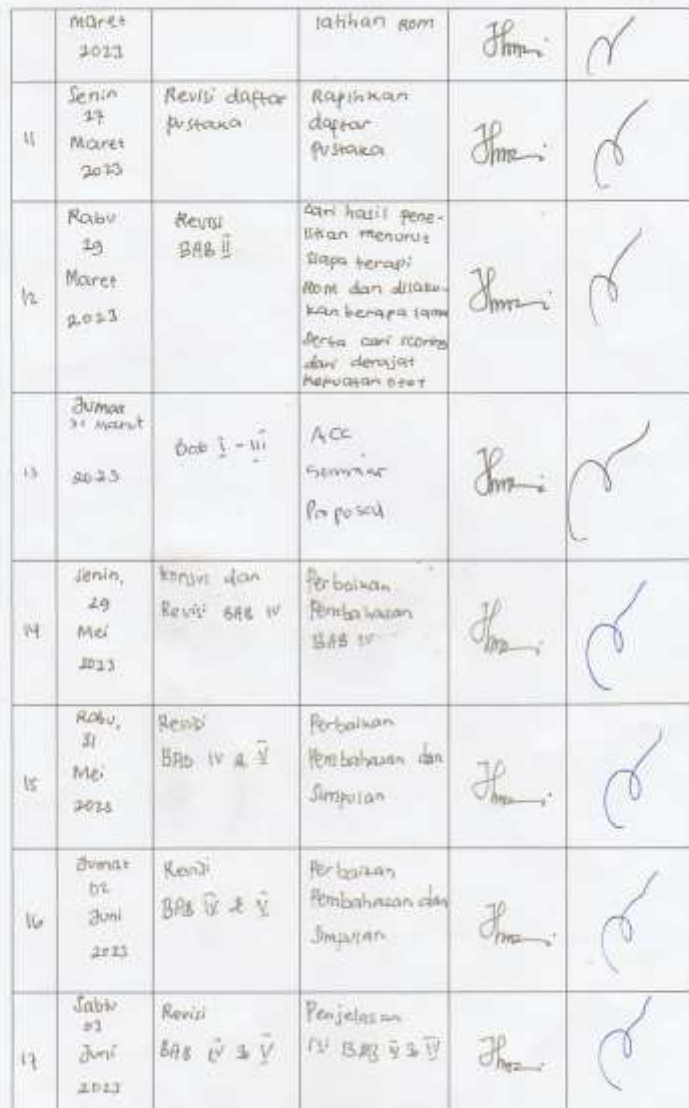 Maret
2023
latihan ROM
11
Senin
27
Maret
2023
Revisi daftar
pustaka
Rapihkan
daftar
pustaka
12
Rabu
29
Maret
2023
Revisi
BAB II
Cari hasil pene-
litian menurut
siapa terapi
ROM dan dilaku-
kan berapa lama
Serta cari scoring
dari derajat
kekuatan otot
13
Jumat
31 Maret
2023
Bab I - III
ACC
Seminar
Proposal
14
Senin,
29
Mei
2023
Konsul dan
Revisi BAB IV
Perbaikan
Pembahasan
BAB IV
15
Rabu,
31
Mei
2023
Revisi
BAB IV & V
Perbaikan
Pembahasan dan
Simpulan
16
Jumat
02
Juni
2023
Revisi
BAB IV & V
Perbaikan
Pembahasan dan
Simpulan
17
Sabtu
03
Juni
2023
Revisi
BAB IV & V
Penjelasan
BAB